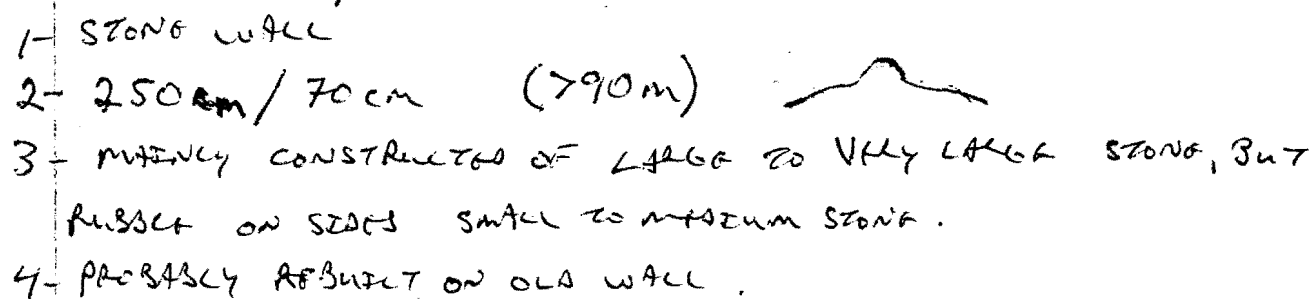 1- STONE WALL
2- 250cm/70cm (>90m)
3- MAINLY CONSTRUCTED OF LARGE TO VERY LARGE STONE, BUT
RUBBLE ON SIDES SMALL TO MEDIUM STONE.
4- PROBABLY REBUILT ON OLD WALL.